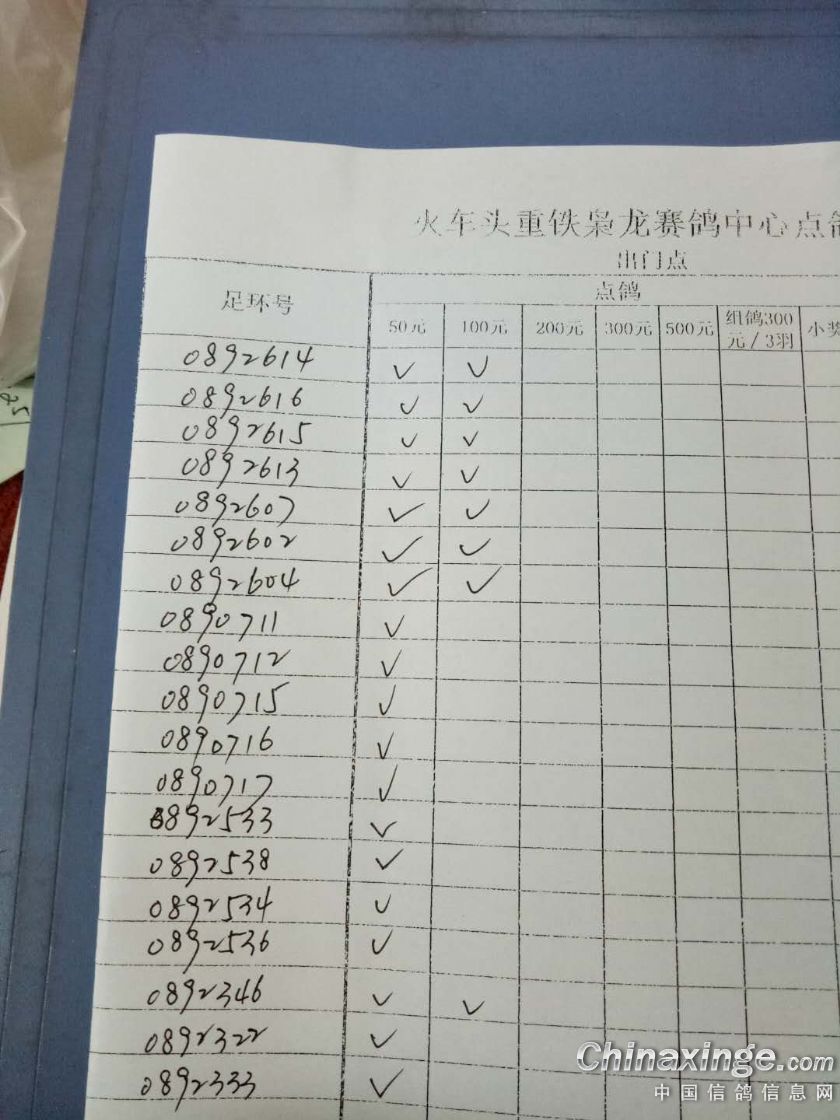 火车头重铁枭龙赛鸽中心点鸽
出门点
足环号 点鸽
50元 100元 200元 300元 500元 组鸽300元/3羽 小奖
0892614 ✓ ✓
0892616 ✓ ✓
0892615 ✓ ✓
0892613 ✓ ✓
0892607 ✓ ✓
0892602 ✓ ✓
0892604 ✓ ✓
0890711 ✓
0890712 ✓
0890715 ✓
0890716 ✓
0890717 ✓
0892533 ✓
0892538 ✓
0892534 ✓
0892536 ✓
0892346 ✓ ✓
0892322 ✓
0892333 ✓
Chinaxinge.com
中国信鸽信息网